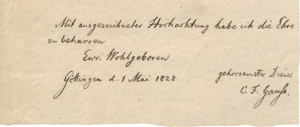 Mit ausgezeichneter Hochachtung habe ich die Ehre
zu beharren
Ewr. Wohlgeboren
Göttingen d. 1 Mai 1828. gehorsamster Diener
C. F. Gauß.